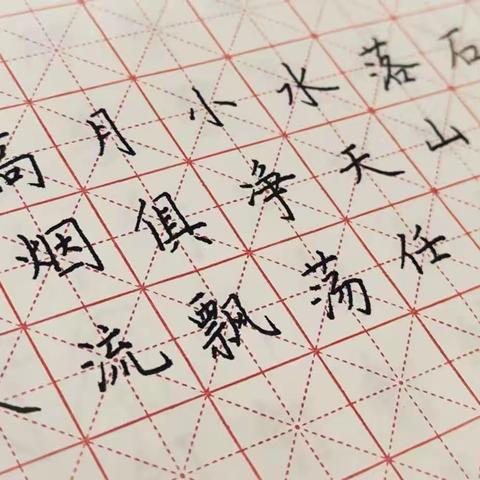 高月小水落石
烟俱净天山
流飘荡任